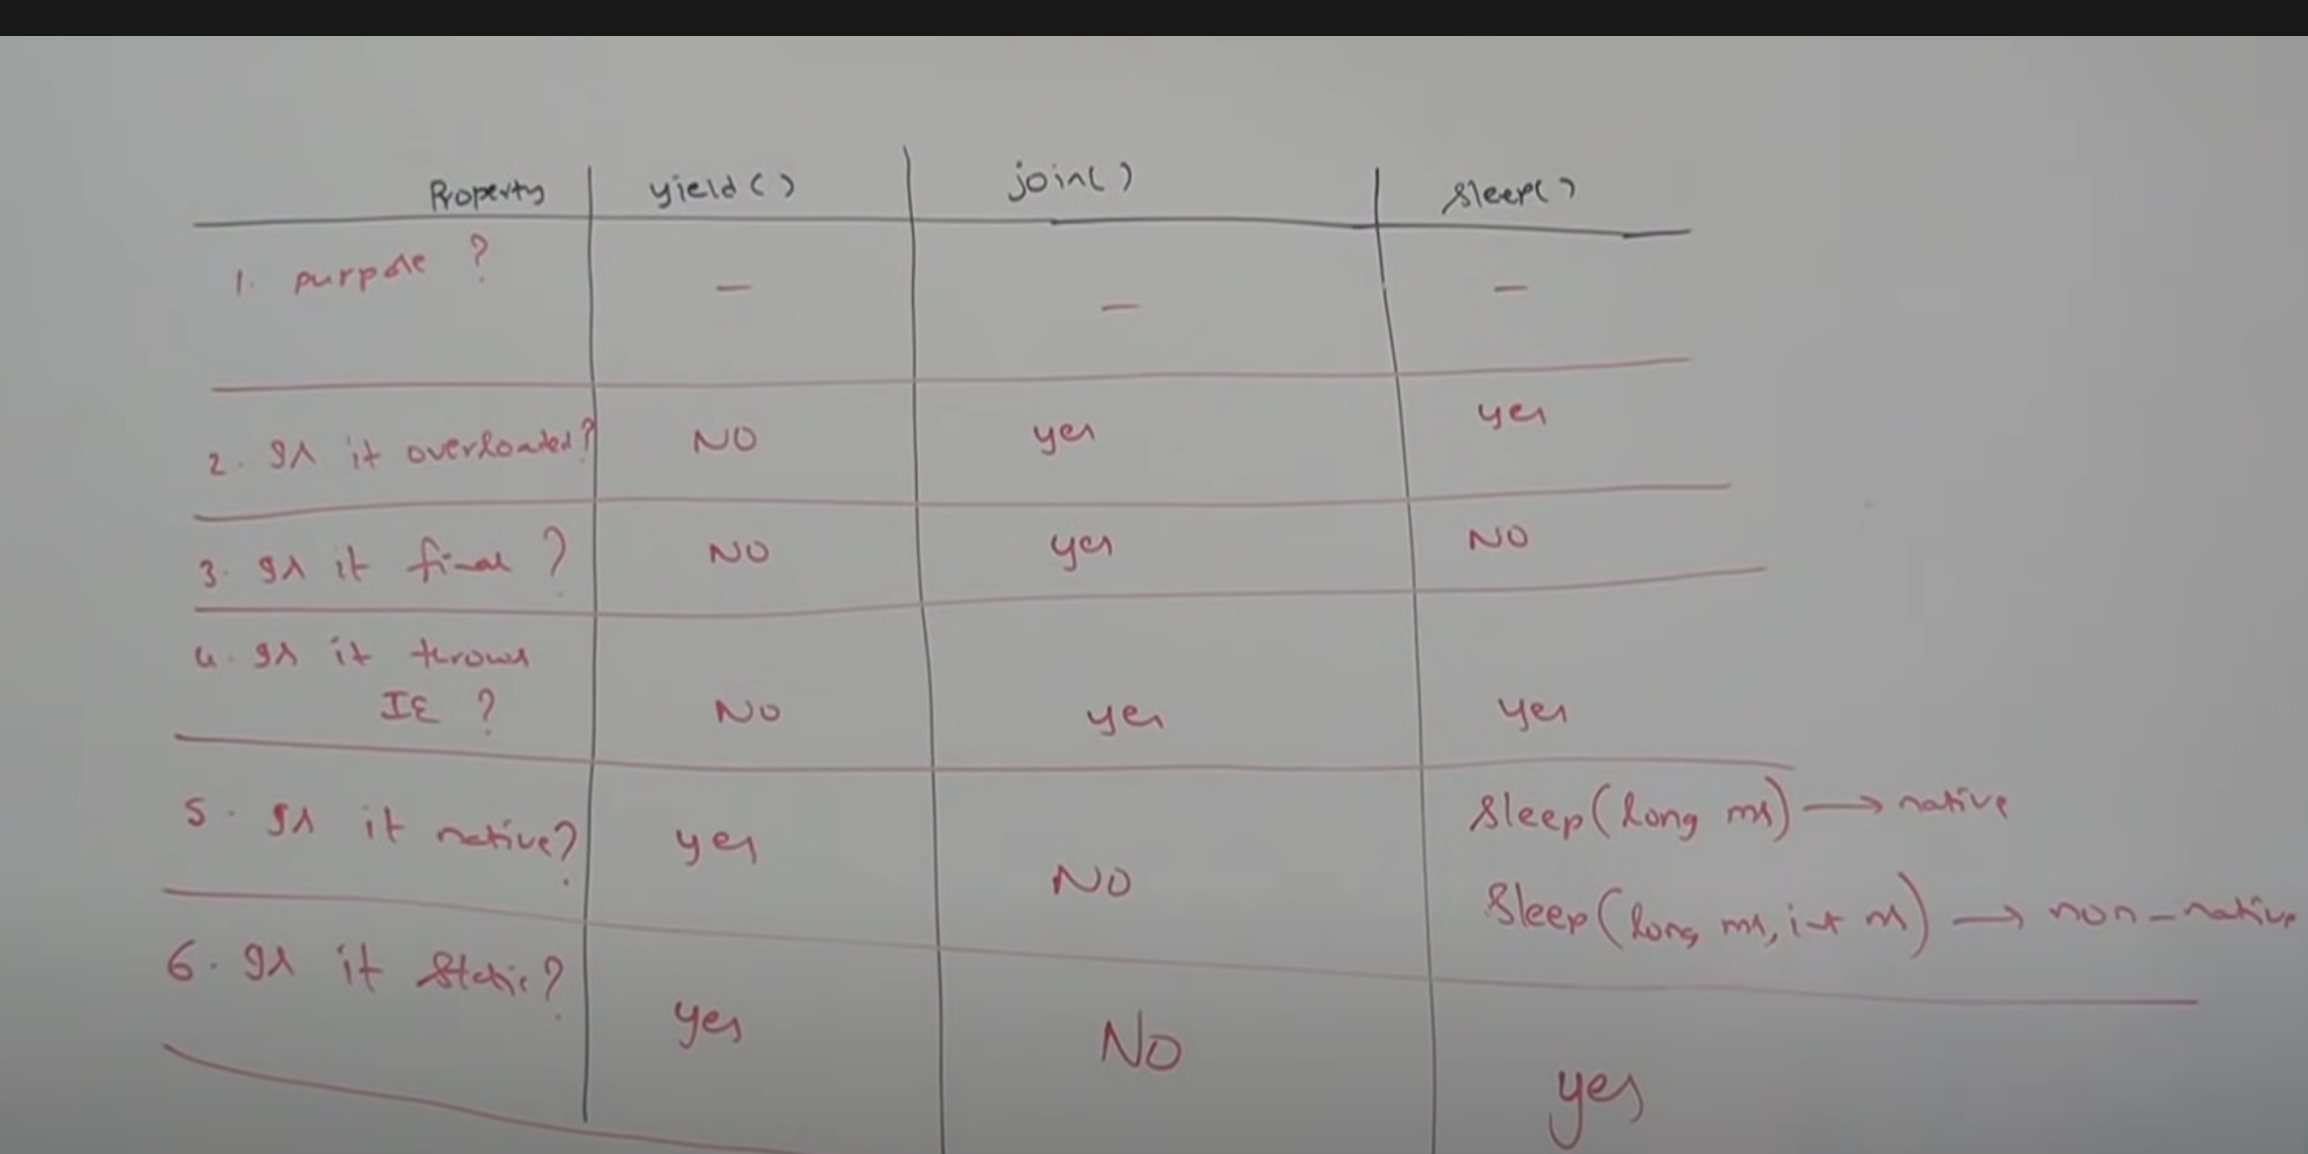 Property yield() join() sleep()
1. purpose ? — — —
2. Is it overloaded? NO yes yes
3. Is it final ? NO yes NO
4. Is it throws
IE ? NO yes yes
5. Is it native? yes NO sleep(long ms) → native
sleep(long ms, int ns) → non-native
6. Is it static? yes NO yes